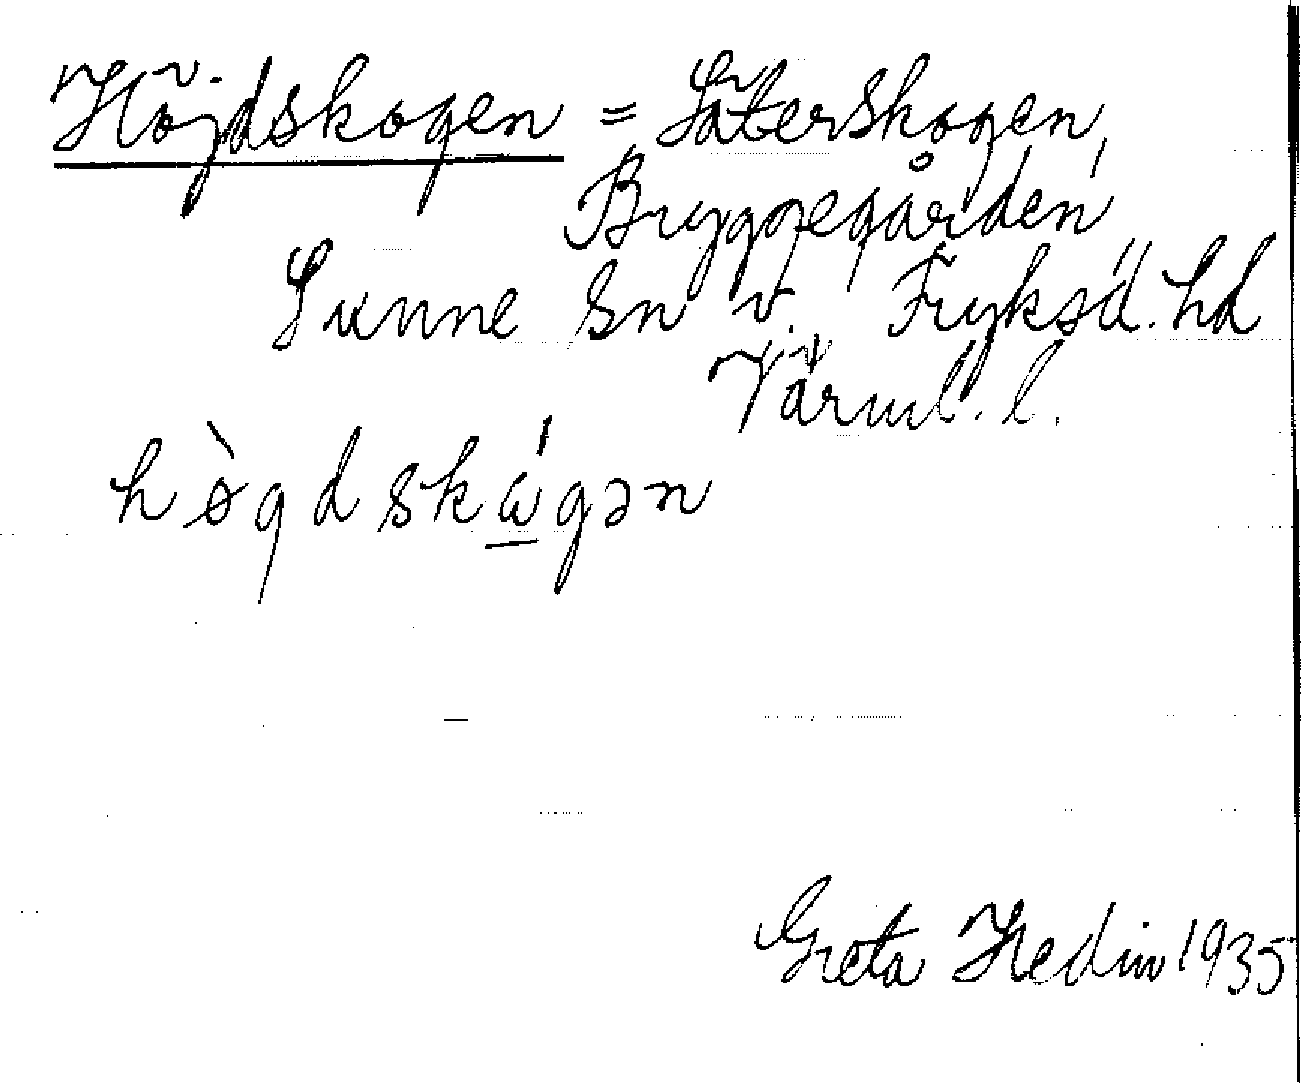 Höjdskogen = Säterskogen,
Bryggegården
Sunne sn v. Fryksd. hd
Värml. l.
hø̀gdskɷ́gən
Greta Hedin 1935